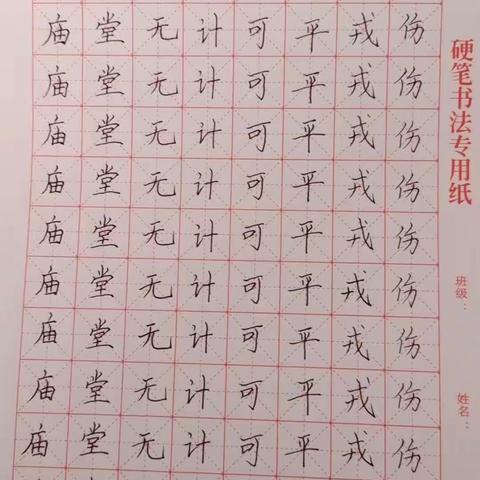 庙堂无计可平戎伤
庙堂无计可平戎伤
庙堂无计可平戎伤
庙堂无计可平戎伤
庙堂无计可平戎伤
庙堂无计可平戎伤
庙堂无计可平戎伤
庙堂无计可平戎伤
庙堂无计可平戎伤
硬笔书法专用纸
班级：
姓名：